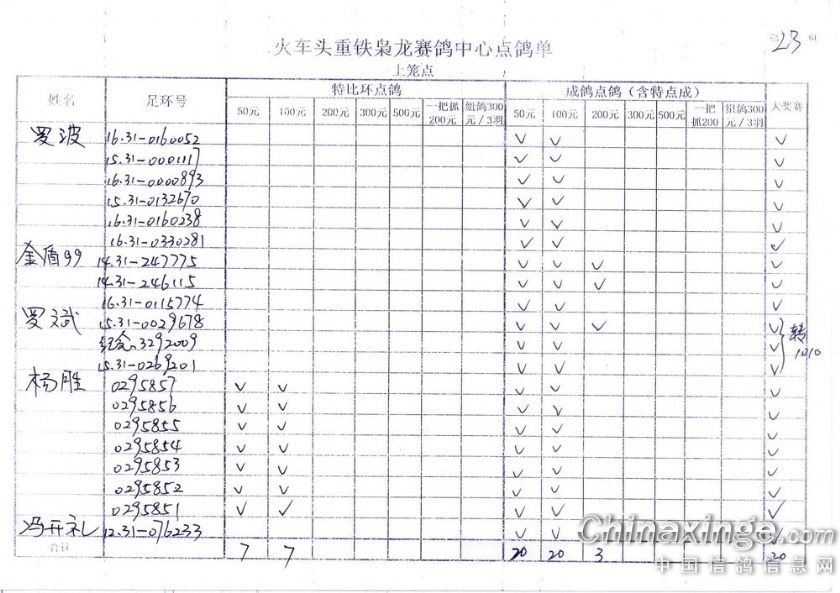 第23页
火车头重铁枭龙赛鸽中心点鸽单
上笼点
姓名 足环号 特比环点鸽 成鸽点鸽（含特点成） 大奖赛
50元 100元 200元 300元 500元 一把抓200元 组鸽300元/3羽 50元 100元 200元 300元 500元 一把抓200 组鸽300元/3羽
罗波 16.31-0160052 √ √ √
15.31-0001117 √ √ √
16.31-0000893 √ √ √
15.31-0132670 √ √ √
16.31-0160238 √ √ √
16.31-0330281 √ √ √
金盾99 14.31-247775 √ √ √ √
14.31-246115 √ √ √ √
16.31-0115774 √ √ √
罗斌 15.31-0029678 √ √ √ √
3292009 √ √ √ 转1010
15.31-0269201 √ √ √
杨胜 0295857 √ √ √ √ √
0295856 √ √ √ √ √
0295855 √ √ √ √ √
0295854 √ √ √ √ √
0295853 √ √ √ √ √
0295852 √ √ √ √ √
0295851 √ √ √ √ √
冯开礼 12.31-076233 √ √ √
合计 7 7 20 20 3 20
Chinaxinge.com
中国信鸽信息网